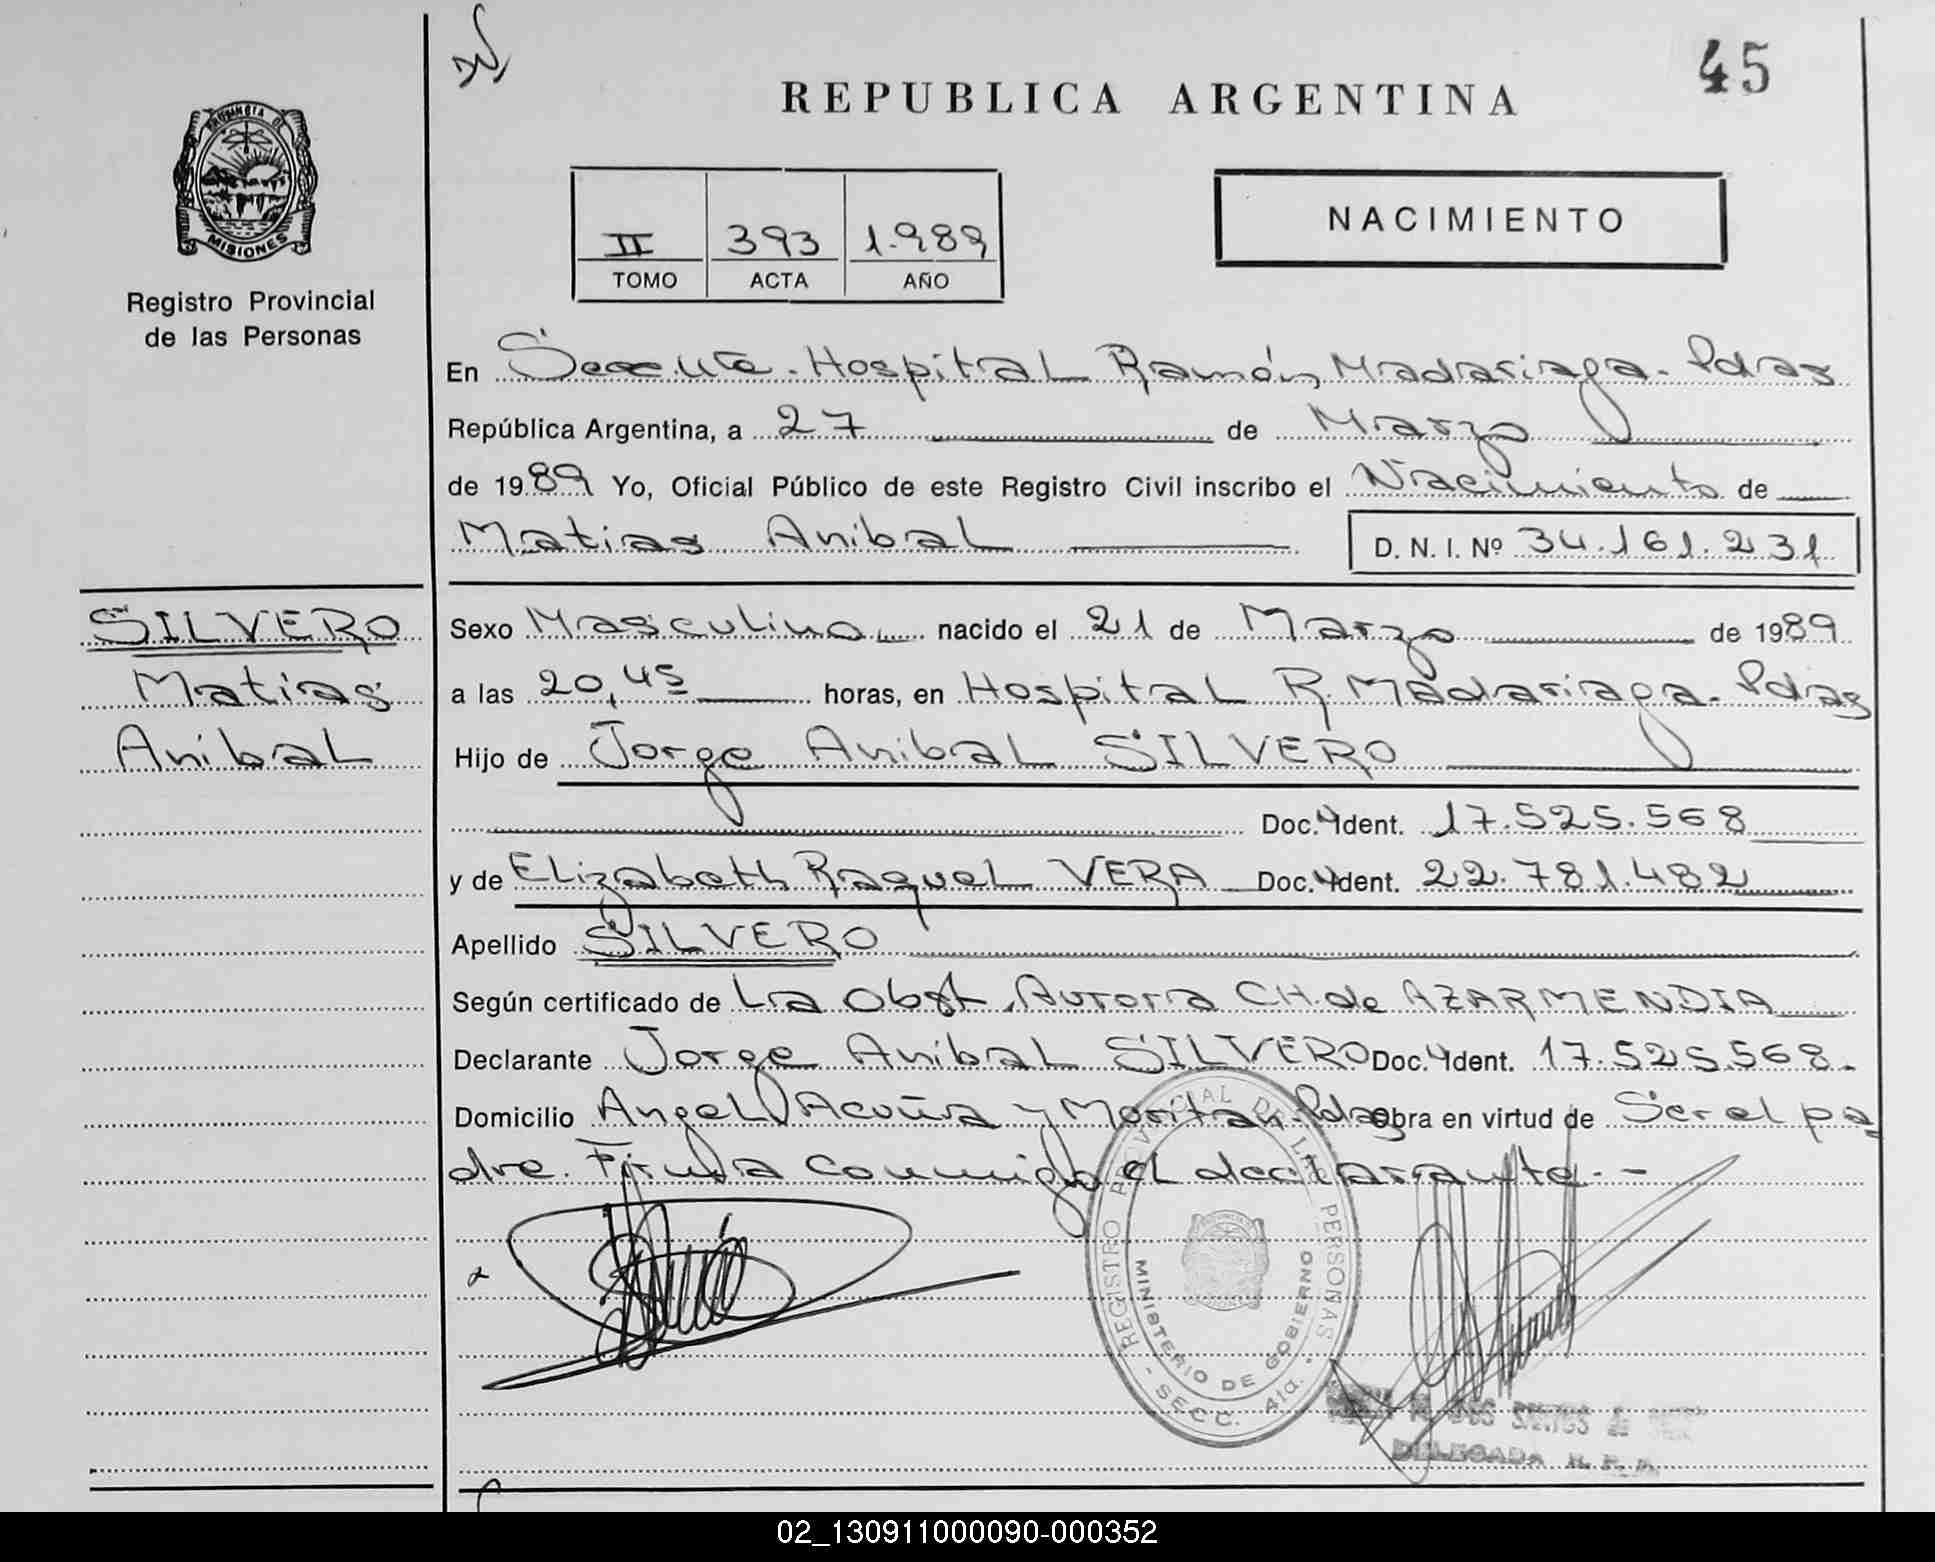 45
REPUBLICA ARGENTINA
PROVINCIA DE
MISIONES
Registro Provincial
de las Personas
II 393 1.989
TOMO ACTA AÑO
NACIMIENTO
En Hospital Ramón Madariaga. Pdas
República Argentina, a 27 de Marzo
de 1989 Yo, Oficial Público de este Registro Civil inscribo el Nacimiento de
Matias Anibal D. N. I. Nº 34.161.231
SILVERO
Matias
Anibal
Sexo Masculino nacido el 21 de Marzo de 1989
a las 20,45 horas, en Hospital R. Madariaga. Pdas
Hijo de Jorge Anibal SILVERO
Doc. Ident. 17.525.568
y de Elizabeth Raquel VERA Doc. Ident. 22.781.482
Apellido SILVERO
Según certificado de La Obst. Aurora CH. de AZARMENDIA
Declarante Jorge Anibal SILVERO Doc. Ident. 17.525.568.
Domicilio Angel Acuña y Moritan. Pdas Obra en virtud de Ser el pa
dre. Firma conmigo el declarante.-
REGISTRO PROVINCIAL DE LAS PERSONAS
MINISTERIO DE GOBIERNO
SECC. 41a.
DOS SANTOS
DELEGADA R. P. P.
02_130911000090-000352